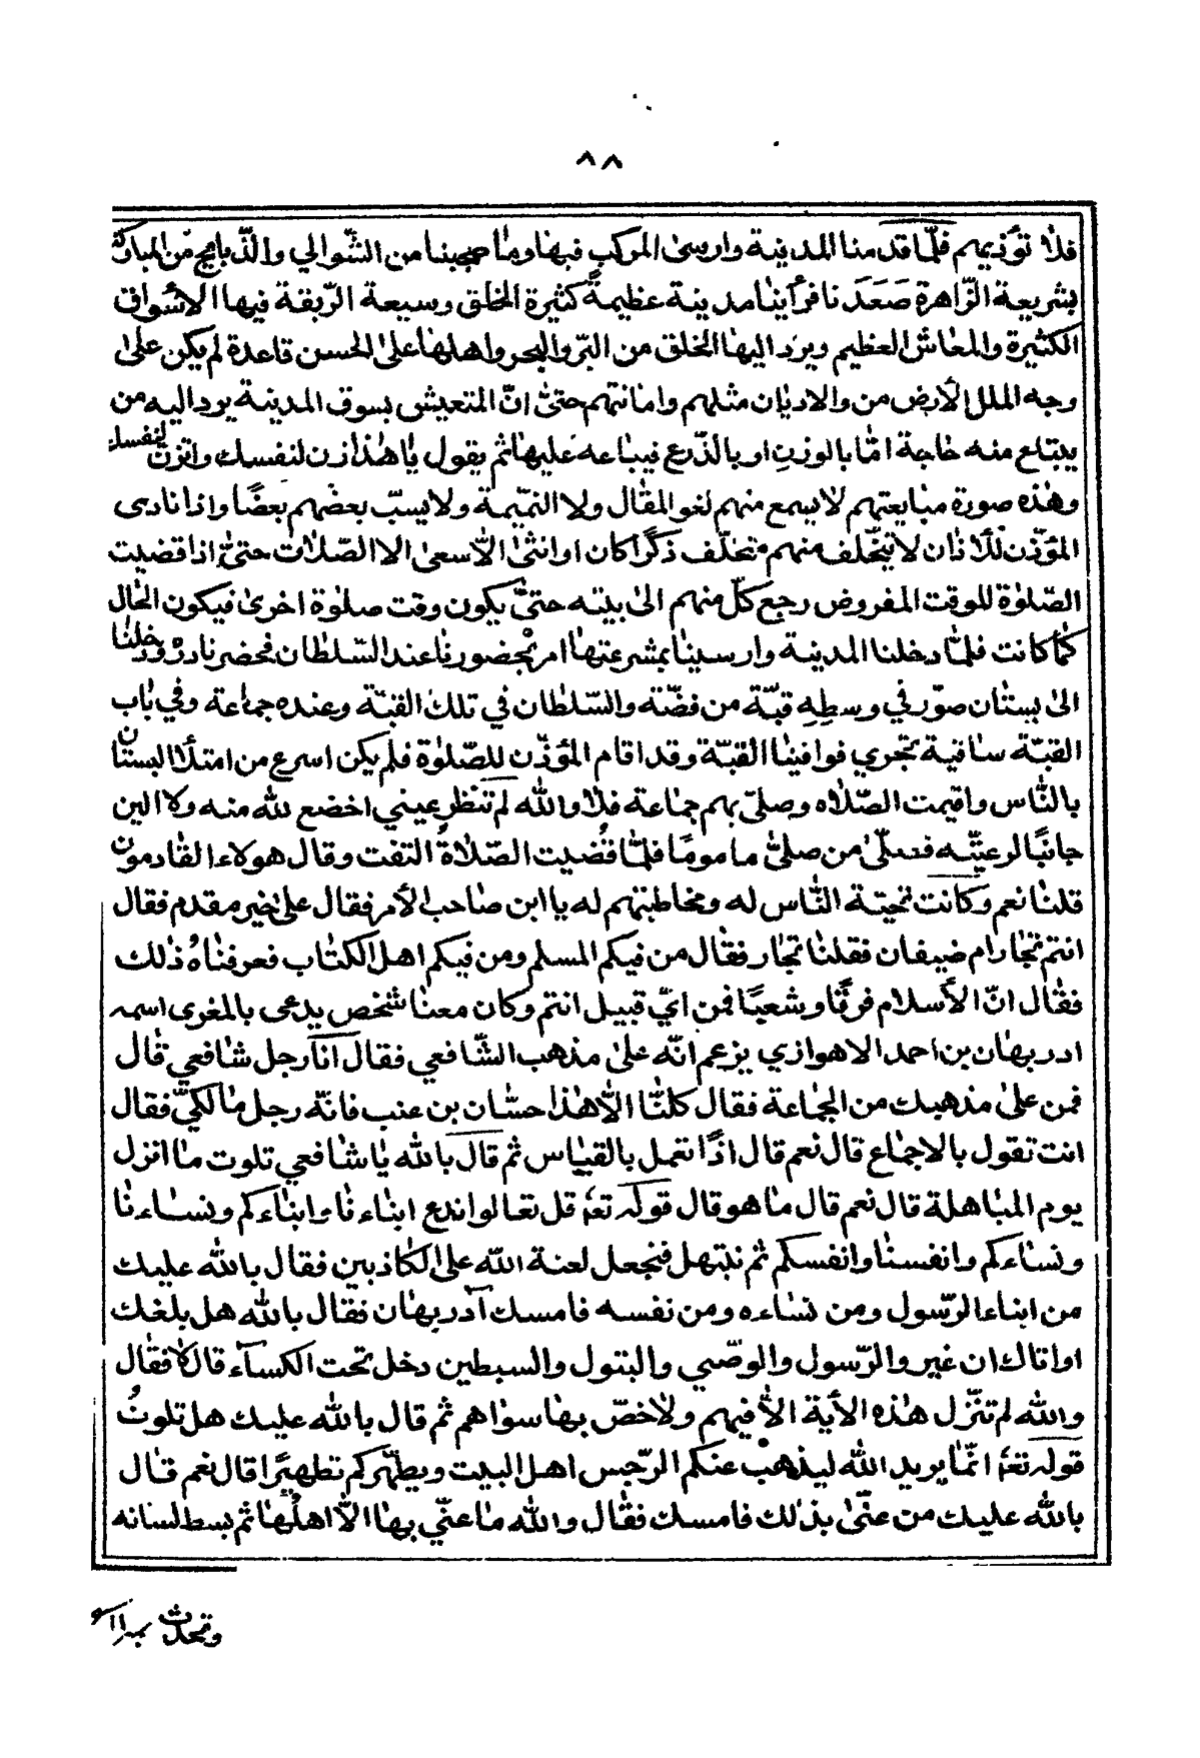 ٨٨
فلا تؤذيهم فلمّا قدمنا المدينة وارسىٰ المركب فيها وما صحبنا من الشّوالي والذّبابيج من المباركة
بشريعة الزّاهرة صَعَدَنا فرأينا مدينة عظيمةً كثيرة الخلق وسيعة الرّبقة فيها الاسواق
الكثيرة والمعاش العظيم ويرد اليها الخلق من البرّ والبحر واهلها على الحسن قاعدة لم يكن علىٰ
وجه الملل الأرض من والاديان مثلهم وامانتهم حتىٰ انّ المتعيش بسوق المدينة يرد اليه من
يبتاع منه حاجة امّا بالوزن او بالذّرع فيباعه عليها ثم يقول يا هٰذا زن لنفسك واتزن لنفسك
وهٰذه صورة مبايعتهم لا يسمع منهم لغو المقال ولا النّميمة ولا يسبّ بعضهم بعضًا واذا نادى
المؤذّن للأذان لا يتخّلف منهم متخلّف ذكرًا كان او انثىٰ الّا سعىٰ الا الصّلات حتىّٰ اذا قضيت
الصّلوٰة للوقت المفروض رجع كلّ منهم الىٰ بيته حتىّٰ يكون وقت صلوٰة اخرىٰ فيكون الحال
كما كانت فلمّا دخلنا المدينة وارسينا بمشرعتها امر بحضورنا عند السّلطان فحضرنا دره ودخلنا
الىٰ بستان صوّر في وسطِهِ قبّة من فضّته والسّلطان في تلك القبّة وعنده جماعة وفي باب
القبّة ساقية تجري فوافينا القبّة وقد اقام المؤذّن للصّلوٰة فلم يكن اسرع من امتلأ البستان
بالنّاس واقيمت الصّلاه وصلىّ بهم جماعة فلا والله لم تنظر عيني اخضع لله منه ولا الين
جانبًا لرعيّته فصلّىٰ من صلىّٰ ماموما فلمّا قُضيت الصّلاةُ التفت وقال هولاء القادمون
قلنا نعم وكانت تحيّة النّاس له ومخاطبتهم له يا ابن صاحب الأمر فقال علىٰ خير مقدم فقال
انتم تجّار ام ضيفان فقلنا تجار فقال من فيكم المسلم ومن فيكم اهل الكتاب فعرفناهُ ذٰلك
فقال انّ الأسلام فرقًا وشعبًا فمن ايّ قبيل انتم وكان معنا شخص يدعى بالمغرى اسمه
ادربهان بن احمد الاهوازي يزعم انّه علىٰ مذهب الشّافعي فقال انا رجل شافعي قال
فمن علىٰ مذهبك من الجماعة فقال كلنّا الّا هٰذا حسّان بن عنب فانّه رجل مالكيّ فقال
انت تقول بالاجماع قال نعم قال اذًا تعمل بالقياس ثم قال بالله يا شافعي تلوت ما انزل
يوم المباهلة قال نعم قال ما هو قال قوله تعٰ قل تعالوا ندع ابناءنا وابناءكم ونساءنا
ونساءكم وانفسنا وانفسكم ثم نبتهل فنجعل لعنة الله على الكاذبين فقال بالله عليك
من ابناء الرّسول ومن نساءه ومن نفسه فامسك آدربهان فقال بالله هل بلغك
او اتاك ان غير والرّسول والوصّي والبتول والسبطين دخل تحت الكسآء قال لا فقال
والله لم تنزّل هٰذه الأية الّا فيهم ولا خصّ بها سواهم ثم قال بالله عليك هل تلوتُ
قوله تعٰ انّما يريد الله ليذهب عنكم الرّجس اهل البيت ويطهّركم تطهيرًا قال نعم قال
بالله عليك من عنّىٰ بذٰلك فامسك فقال والله ما عنّي بها الّا اهلُها ثم بسط لسانه
وتحدّث